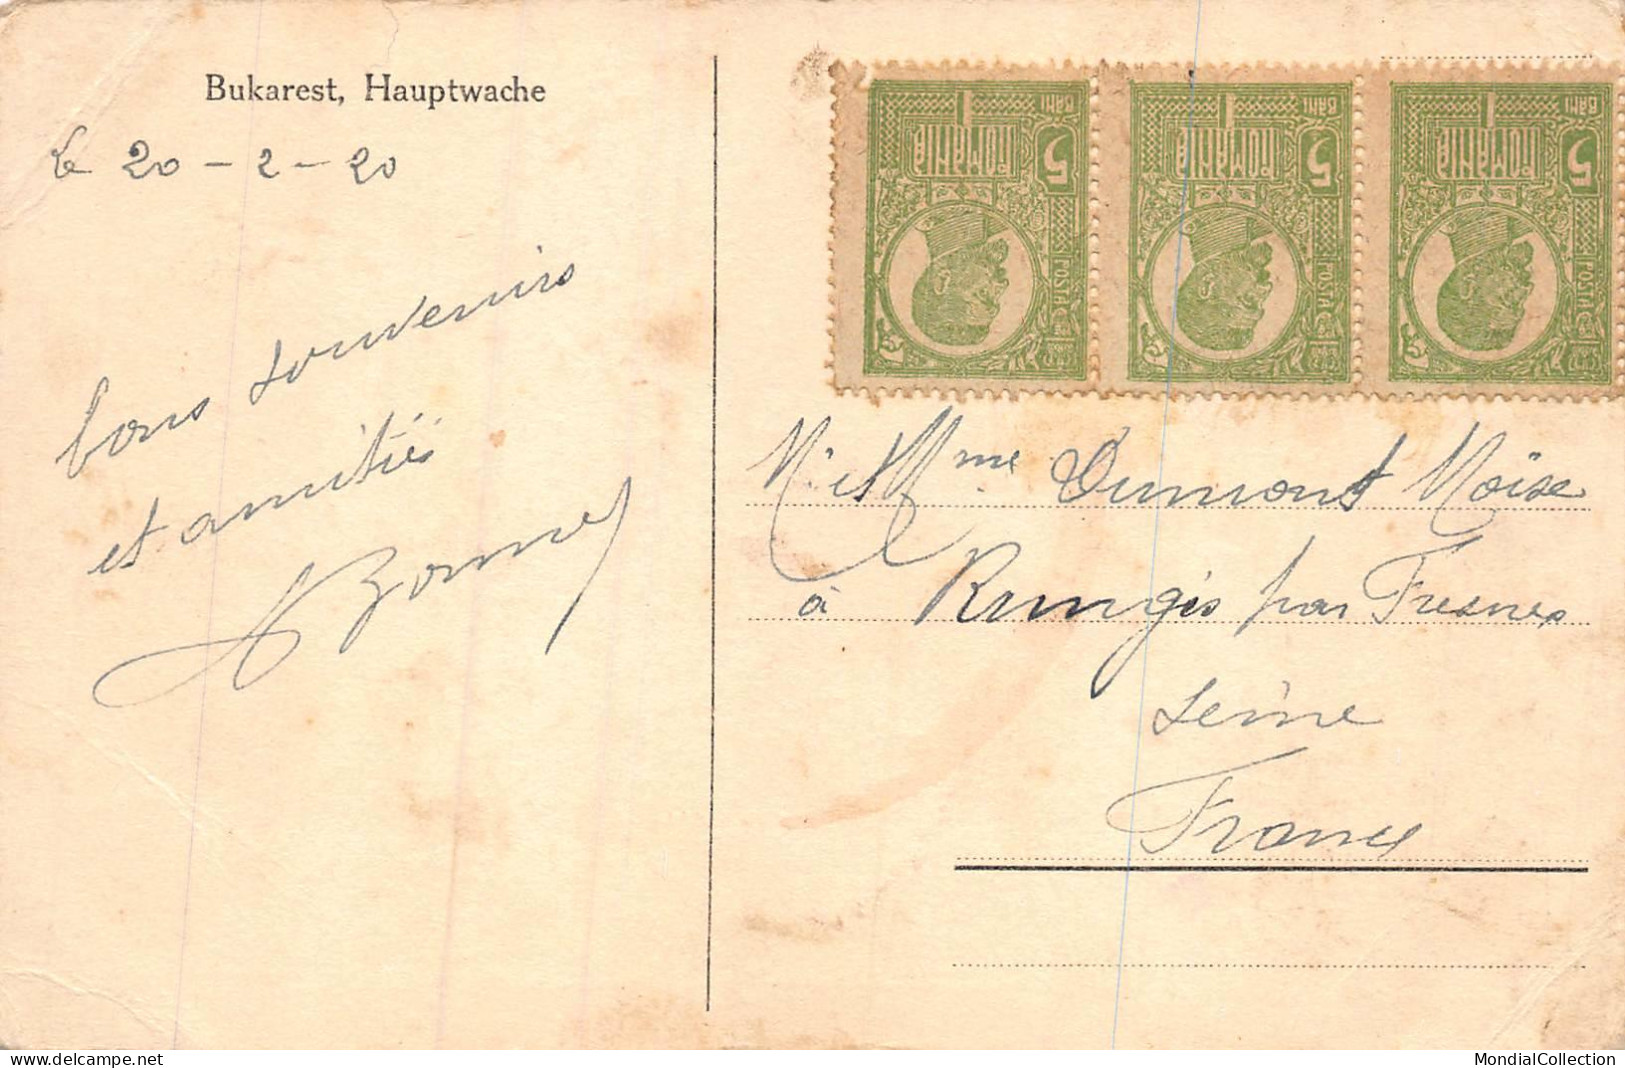 Bukarest, Hauptwache
le 20-2-20
bons souvenirs
et amitiés
5 BANI ROMANIA POSTA
5 BANI ROMANIA POSTA
5 BANI ROMANIA POSTA
M. et Mme Dumont Moïse
à Rungis par Fresnes
Seine
France
delcampe.net
MondialCollection